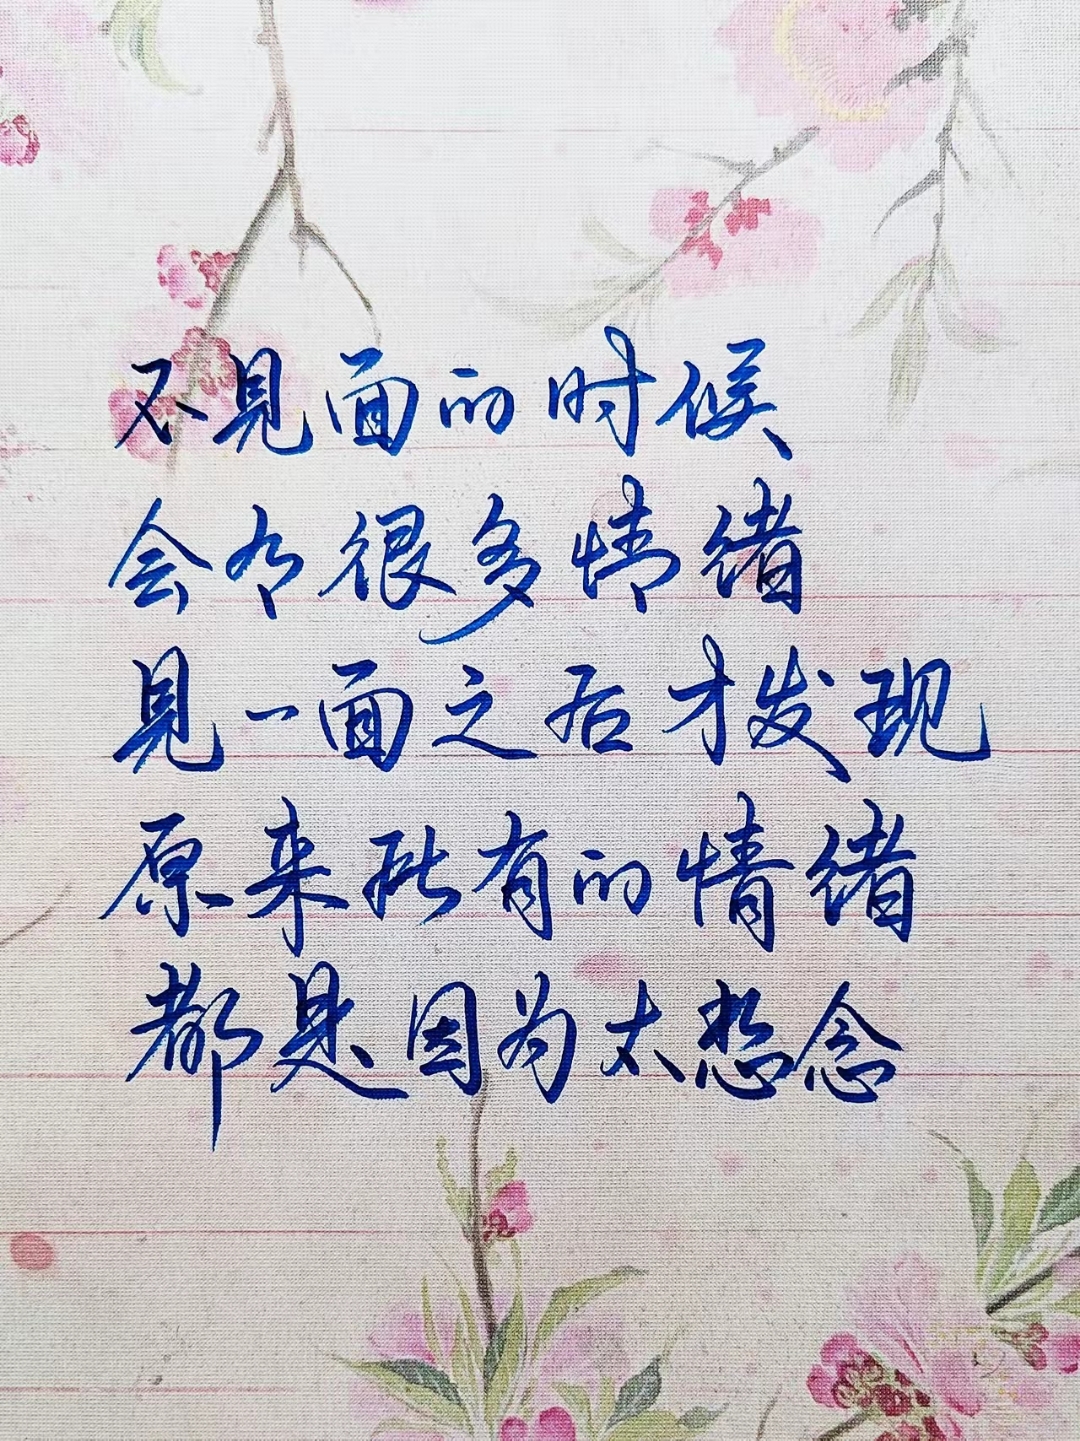 不见面的时候
会有很多情绪
见一面之后才发现
原来所有的情绪
都是因为太想念